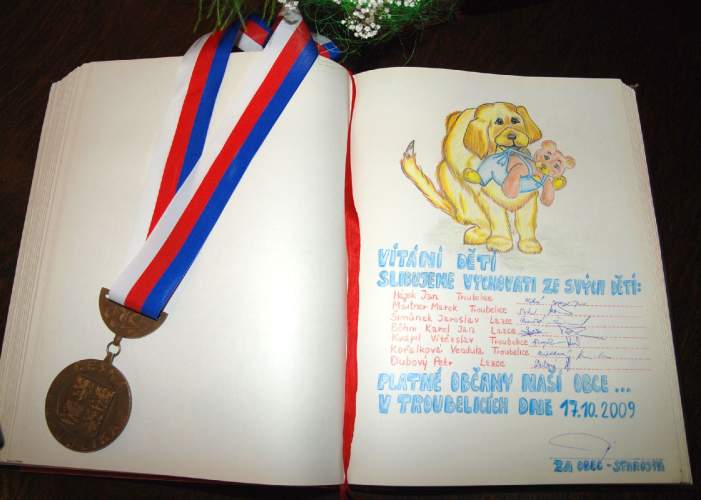 VÍTÁNÍ DĚTÍ
SLIBUJEME VYCHOVATI ZE SVÝCH DĚTÍ:
Hájek Jan Troubelice
Marek Troubelice
Šimůnek Jaroslav Lazce
Böhm Karel Jan Lazce
Vítězslav Troubelice
Kořalková Vendula Troubelice
Dubový Petr Lazce
PLATNÉ OBČANY NAŠÍ OBCE ...
V TROUBELICÍCH DNE 17.10.2009
ZA OBEC - STAROSTA